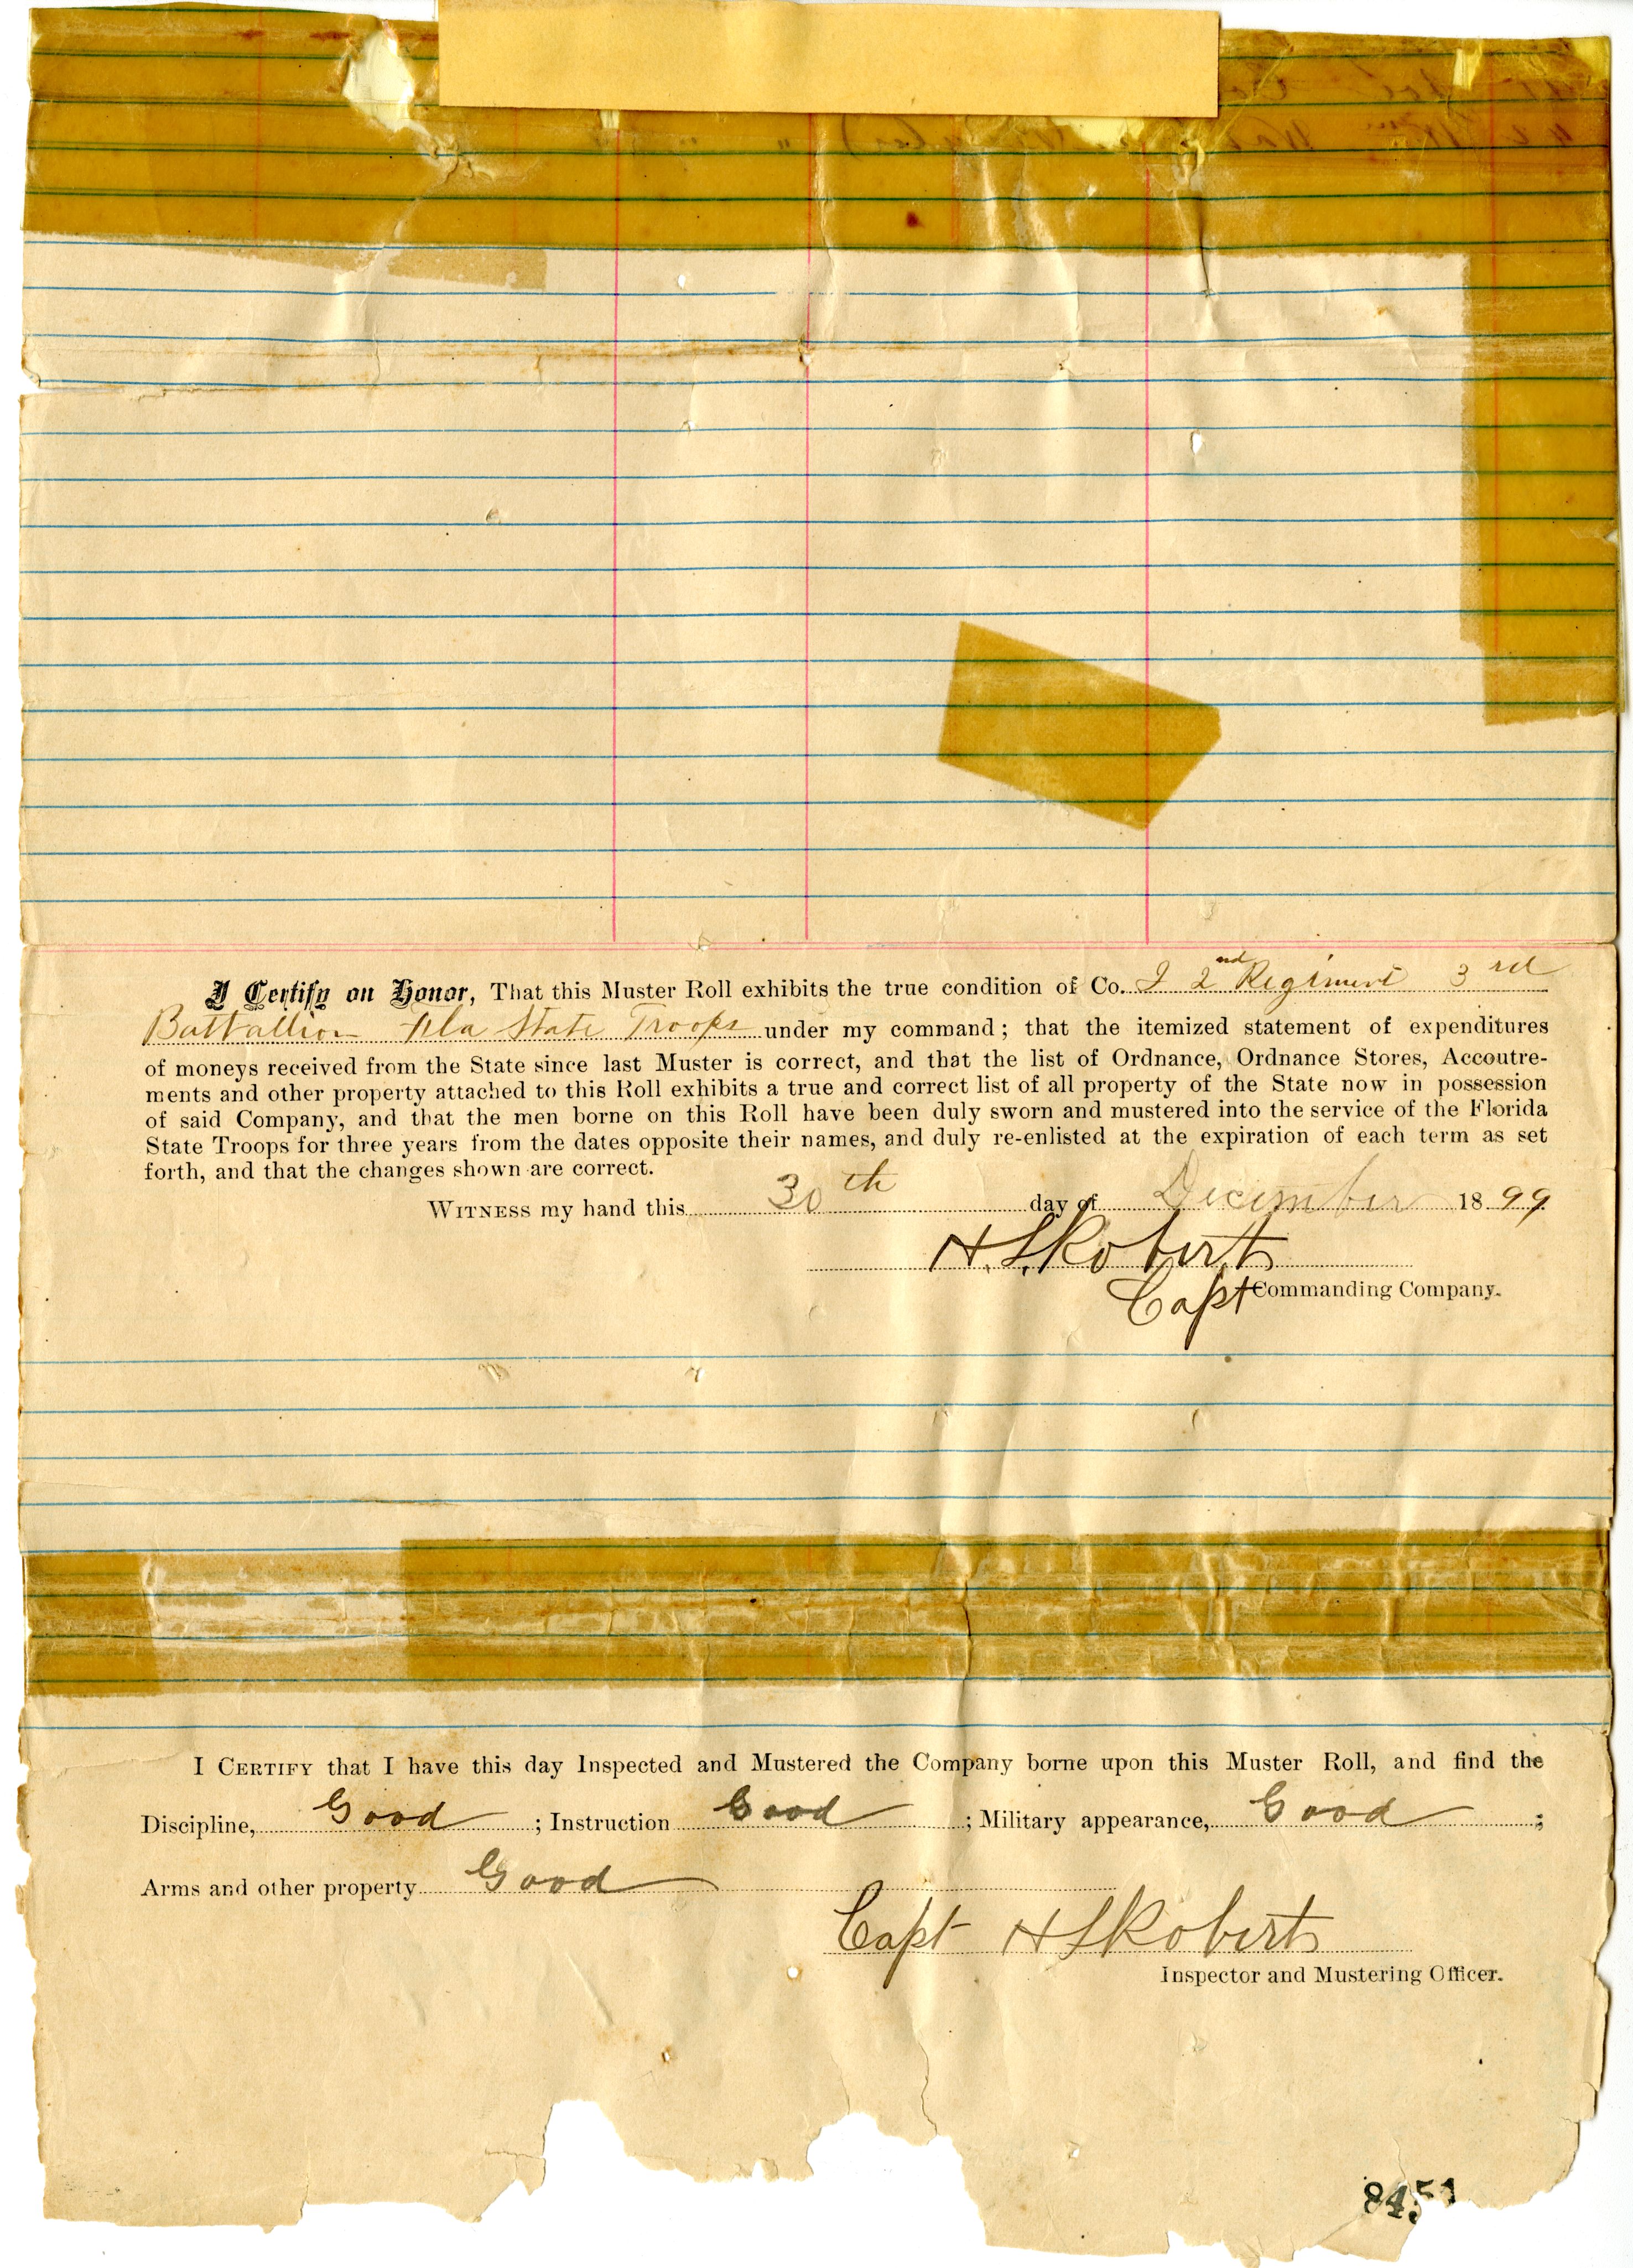 I Certify on Honor, That this Muster Roll exhibits the true condition of Co. I 2nd Regiment 3rd
Battallion Fla State Troops under my command; that the itemized statement of expenditures
of moneys received from the State since last Muster is correct, and that the list of Ordnance, Ordnance Stores, Accoutre-
ments and other property attached to this Roll exhibits a true and correct list of all property of the State now in possession
of said Company, and that the men borne on this Roll have been duly sworn and mustered into the service of the Florida
State Troops for three years from the dates opposite their names, and duly re-enlisted at the expiration of each term as set
forth, and that the changes shown are correct.
WITNESS my hand this 30th day of December 1899
H.S. Roberts
Capt Commanding Company.
I CERTIFY that I have this day Inspected and Mustered the Company borne upon this Muster Roll, and find the
Discipline, Good ; Instruction Good ; Military appearance, Good ;
Arms and other property Good
Capt H S Roberts
Inspector and Mustering Officer.
8451